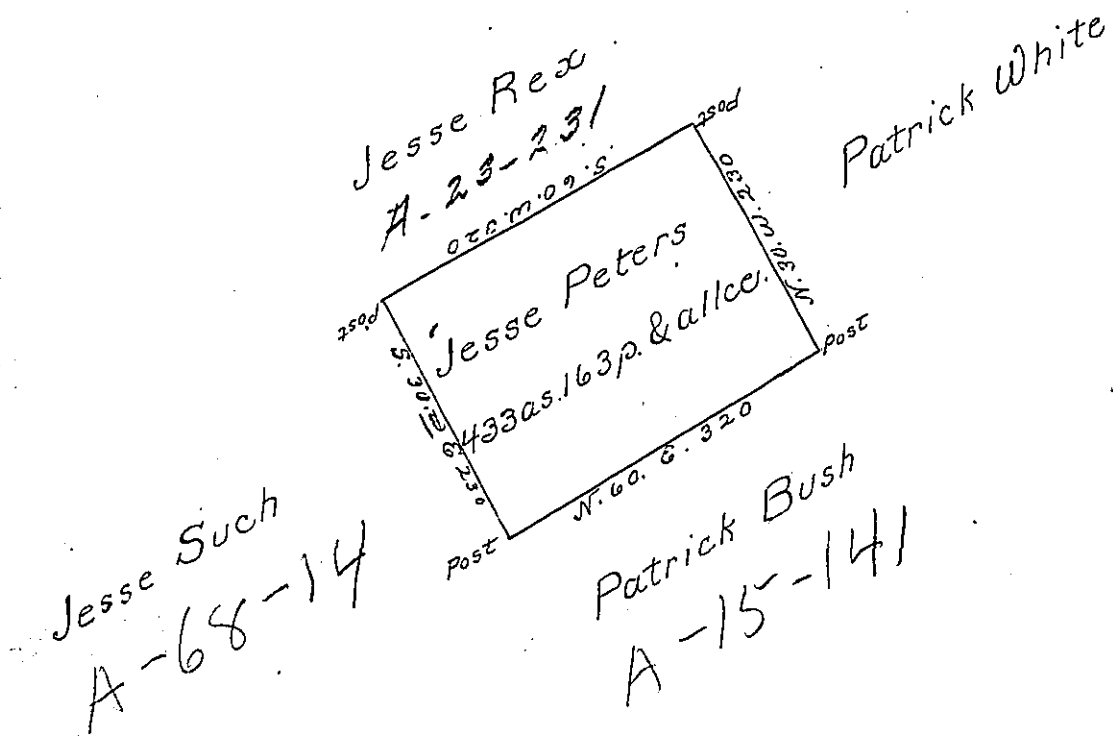 Jesse Rex
A-23-231
Patrick White
Post
S. 60. W. 320
N. 30. W. 230
Jesse Peters
433as. 163p. & allce.
Post
S. 30. E 230
Post
Post
N. 60. E. 320
Jesse Such
A-68-14
Patrick Bush
A-15-141